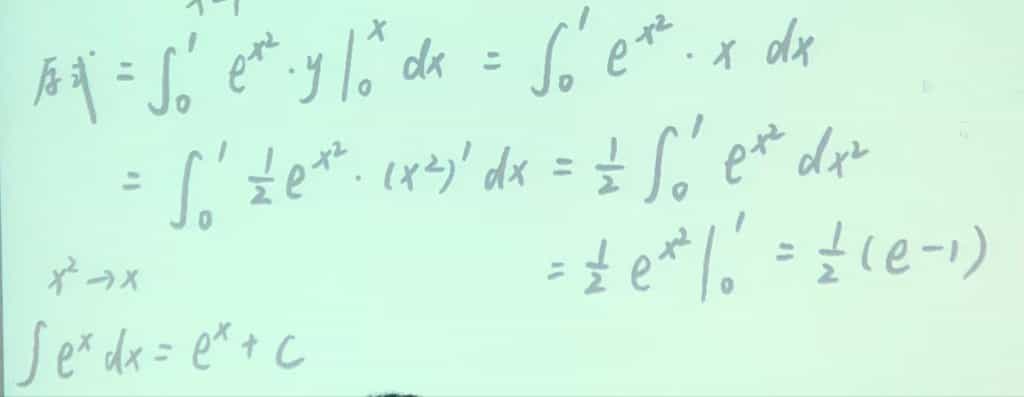 原式 = ∫₀¹ e^{x²}·y |₀ˣ dx = ∫₀¹ e^{x²}·x dx
= ∫₀¹ ½ e^{x²}·(x²)' dx = ½ ∫₀¹ e^{x²} dx²
= ½ e^{x²} |₀¹ = ½ (e-1)
x² → x
∫ eˣ dx = eˣ + C